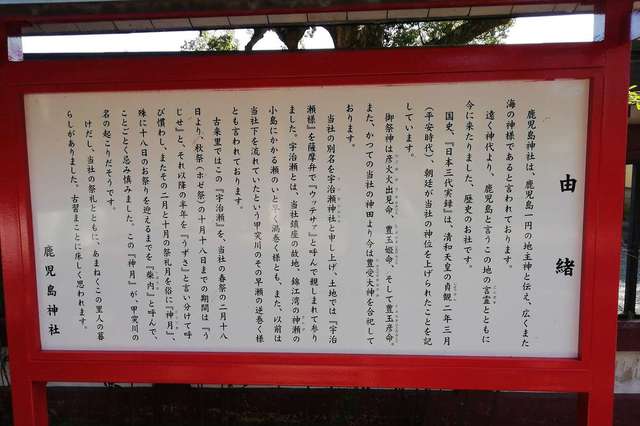 由緒
鹿児島神社は、鹿児島一円の地主神と伝え、広くまた
海の神様であると言われております。
遠く神代より、鹿児島と言うこの地の言霊とともに
今に来たりました、歴史のお社です。
国史、『日本三代実録』は、清和天皇の貞観二年三月
(平安時代)、朝廷が当社の神位を上げられたことを記
しています。
御祭神は彦火火出見命、豊玉姫命、そして豊玉彦命、
また、かつての当社の神田より今は豊受大神を合祀して
おります。
当社の別名を宇治瀬神社と申し上げ、土地では『宇治
瀬様』を薩摩弁で『ウッテサァ』と呼んで親しまれて参り
ました。宇治瀬とは、当社鎮座の故地、錦江湾の神瀬の
小島にかかる瀬のいとど渦巻く様とも、また、以前は
当社下を流れていたという甲突川のその早瀬の逆巻く様
とも言われております。
古来里ではこの『宇治瀬』を、当社の春祭の二月十八
日より、秋祭(ホゼ祭)の十月十八日までの期間は『う
じせ』と、それ以降の半年を『うずさ』と言い分けて呼
び慣わし、またその二月と十月の祭礼月を俗に『神月』、
殊に十八日のお祭りを迎えるまでを『柴内』と呼んで、
ことごとく忌み慎みました。この『神月』が、甲突川の
名の起こりだそうです。
けだし、当社の祭礼とともに、あまねくこの里人の暮
らしがありました。古習まことに床しく思われます。
鹿児島神社